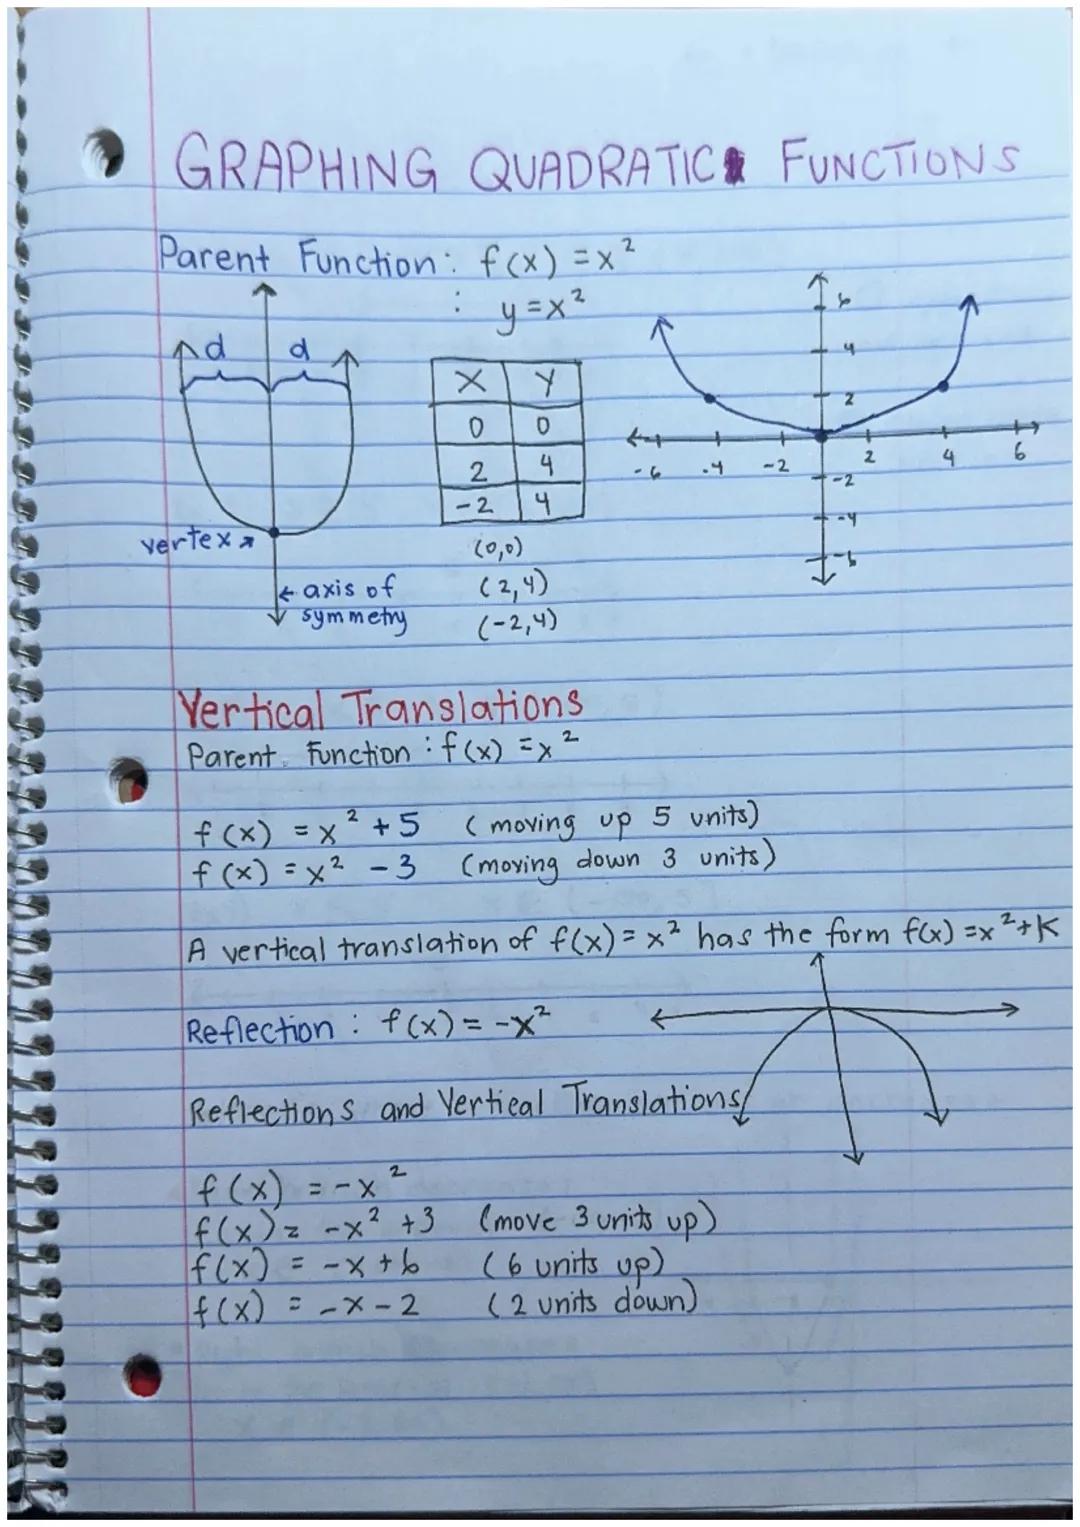 GRAPHING QUADRATIC FUNCTIONS
Parent Function: f(x) = x²
: y = x²
d d
vertex
axis of
symmetry
X Y
0 0
2 4
-2 4
(0,0)
(2,4)
(-2,4)
6
4
2
-6 -4 -2 2 4 6
-2
-4
-6
Vertical Translations
Parent Function : f(x) = x²
f(x) = x² + 5 (moving up 5 units)
f(x) = x² - 3 (moving down 3 units)
A vertical translation of f(x) = x² has the form f(x) = x² + K
Reflection : f(x) = -x²
Reflections and Vertical Translations
f(x) = -x²
f(x) = -x² + 3 (move 3 units up)
f(x) = -x + 6 (6 units up)
f(x) = -x - 2 (2 units down)